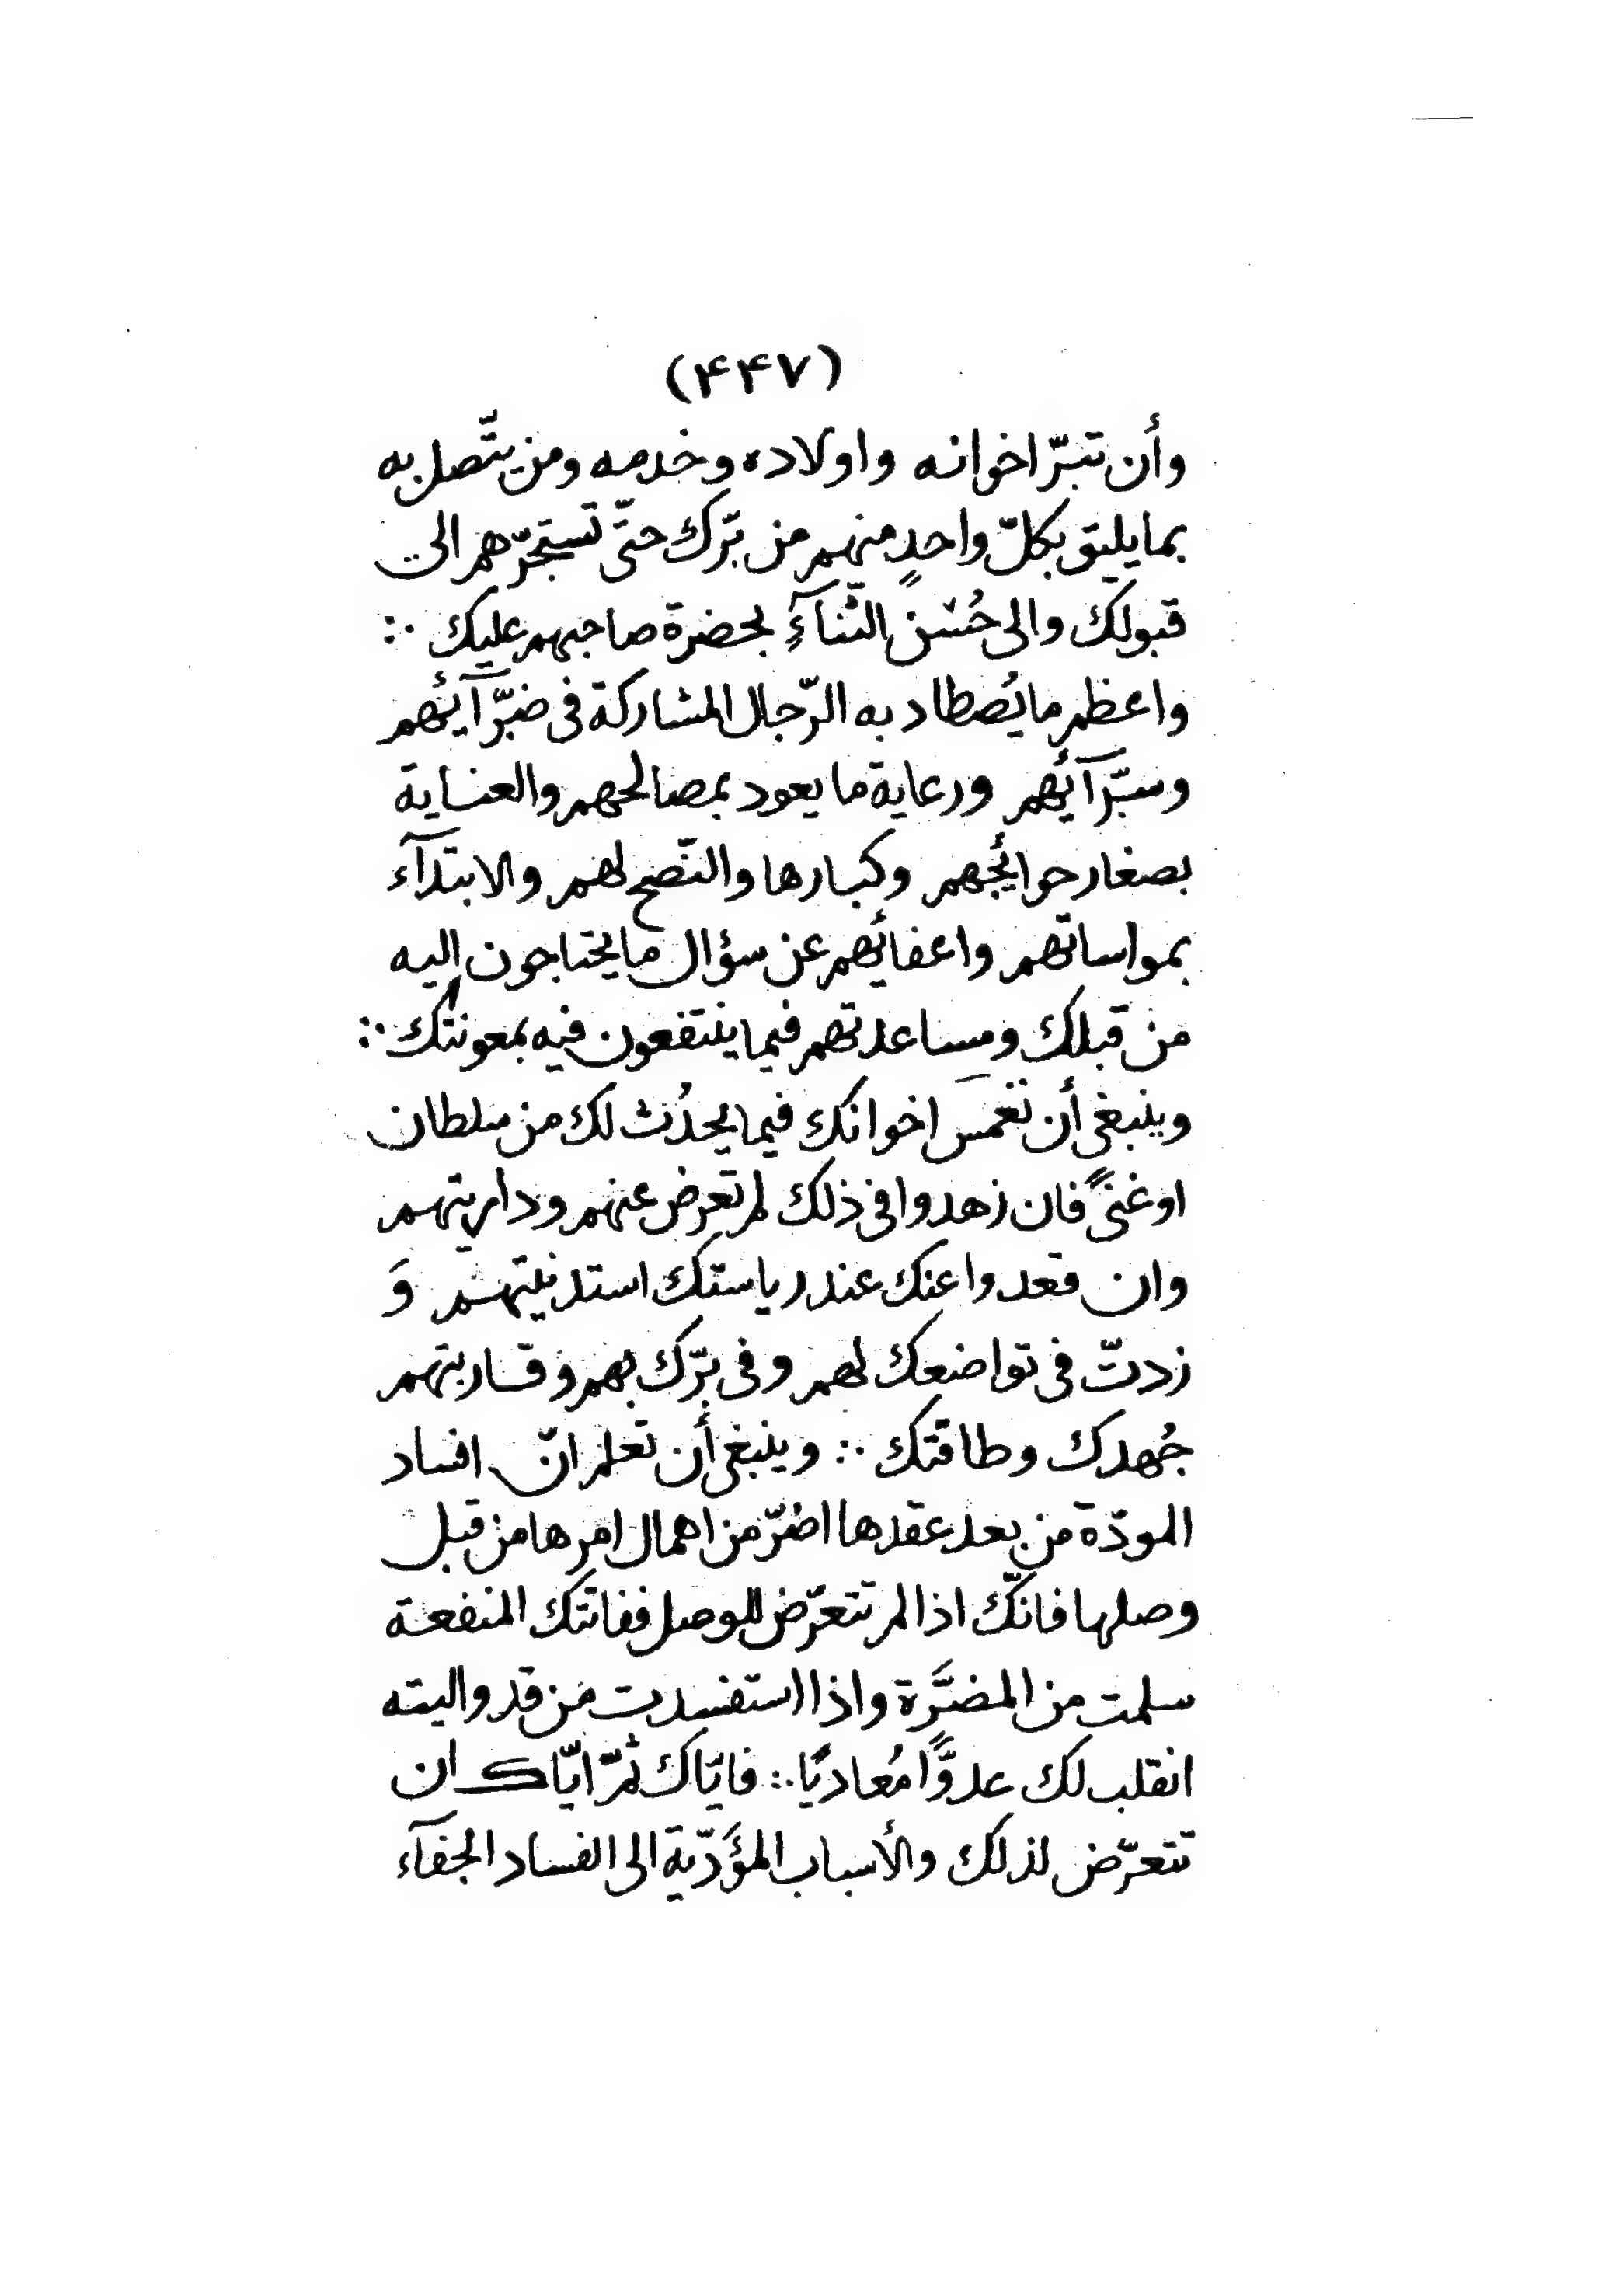 (۴۴۷)
وأن تبرّ اخوانه واولاده وخدمه ومن يتّصل به
بما يليق بكلّ واحدٍ منهم من برّك حتّى تستجرّهم الى
قبولك والى حُسْنِ الثّنآءِ بحضرة صاحبهم عليك ∴
واعظم ما يُصطاد به الرّجال المشاركة فى ضرّآئهم
وسرّآئهم ورعاية ما يعود بمصالحهم والعناية
بصغار حوائجهم وكبارها والنّصح لهم والابتدآء
بمواساتهم واعفائهم عن سؤال ما يحتاجون اليه
من قبلك ومساعدتهم فيما ينتفعون فيه بمعونتك ∴
وينبغى أن تغمس اخوانك فيما يحدُث لك من سلطان
او غنىً فان زهدوا فى ذلك لم تعرض عنهم وداريتهم
وان قعدوا عنك عند رياستك استدنيتهم وَ
زدتّ فى تواضعك لهم وفى برّك بهم وقاربتهم
جُهدك وطاقتك ∴ وينبغى أن تعلم انّ افساد
المودّة من بعد عقدها اضرّ من اهمال امرها من قبل
وصلها فانّك اذا لم تتعرّض للوصل ففاتتك المنفعة
سلمت من المضرَّة واذا استفسدت مَن قد واليته
انقلب لك عدوًّا مُعاديًا ∴ فايّاك ثمّ ايّاك ان
تتعرّض لذلك والأسباب المؤَدّية الى الفساد الجفآء